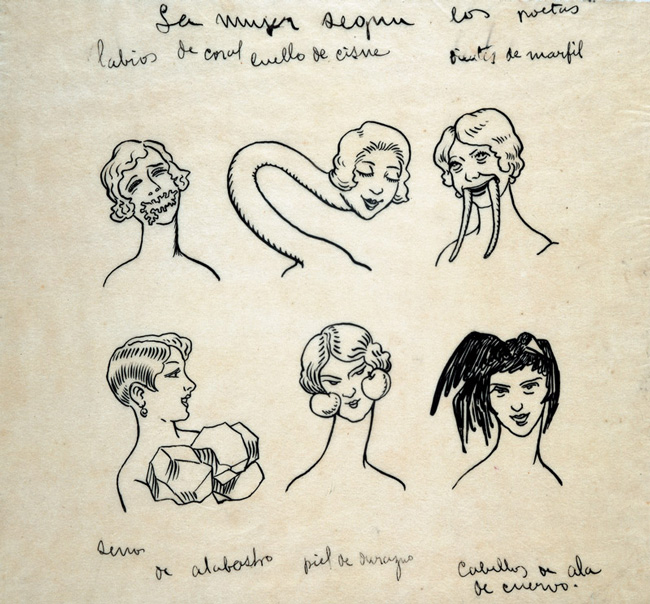 La mujer segun los poetas
labios de coral cuello de cisne dientes de marfil
senos de alabastro piel de durazno cabellos de ala
de cuervo.